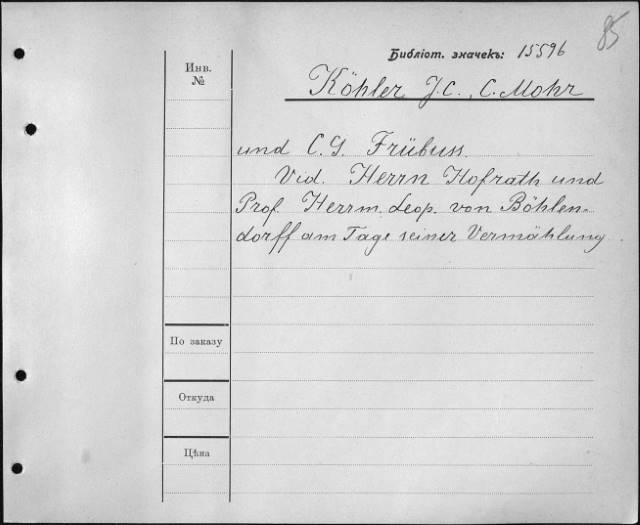 85
Библіот. значекъ: 15596
Инв.
№
Köhler J. C., C. Mohr
und C. G. Frübuss.
Vid. Herrn Hofrath und
Prof. Herrm. Leop. von Böhlen-
dorff am Tage seiner Vermählung.
По заказу
Откуда
Цѣна